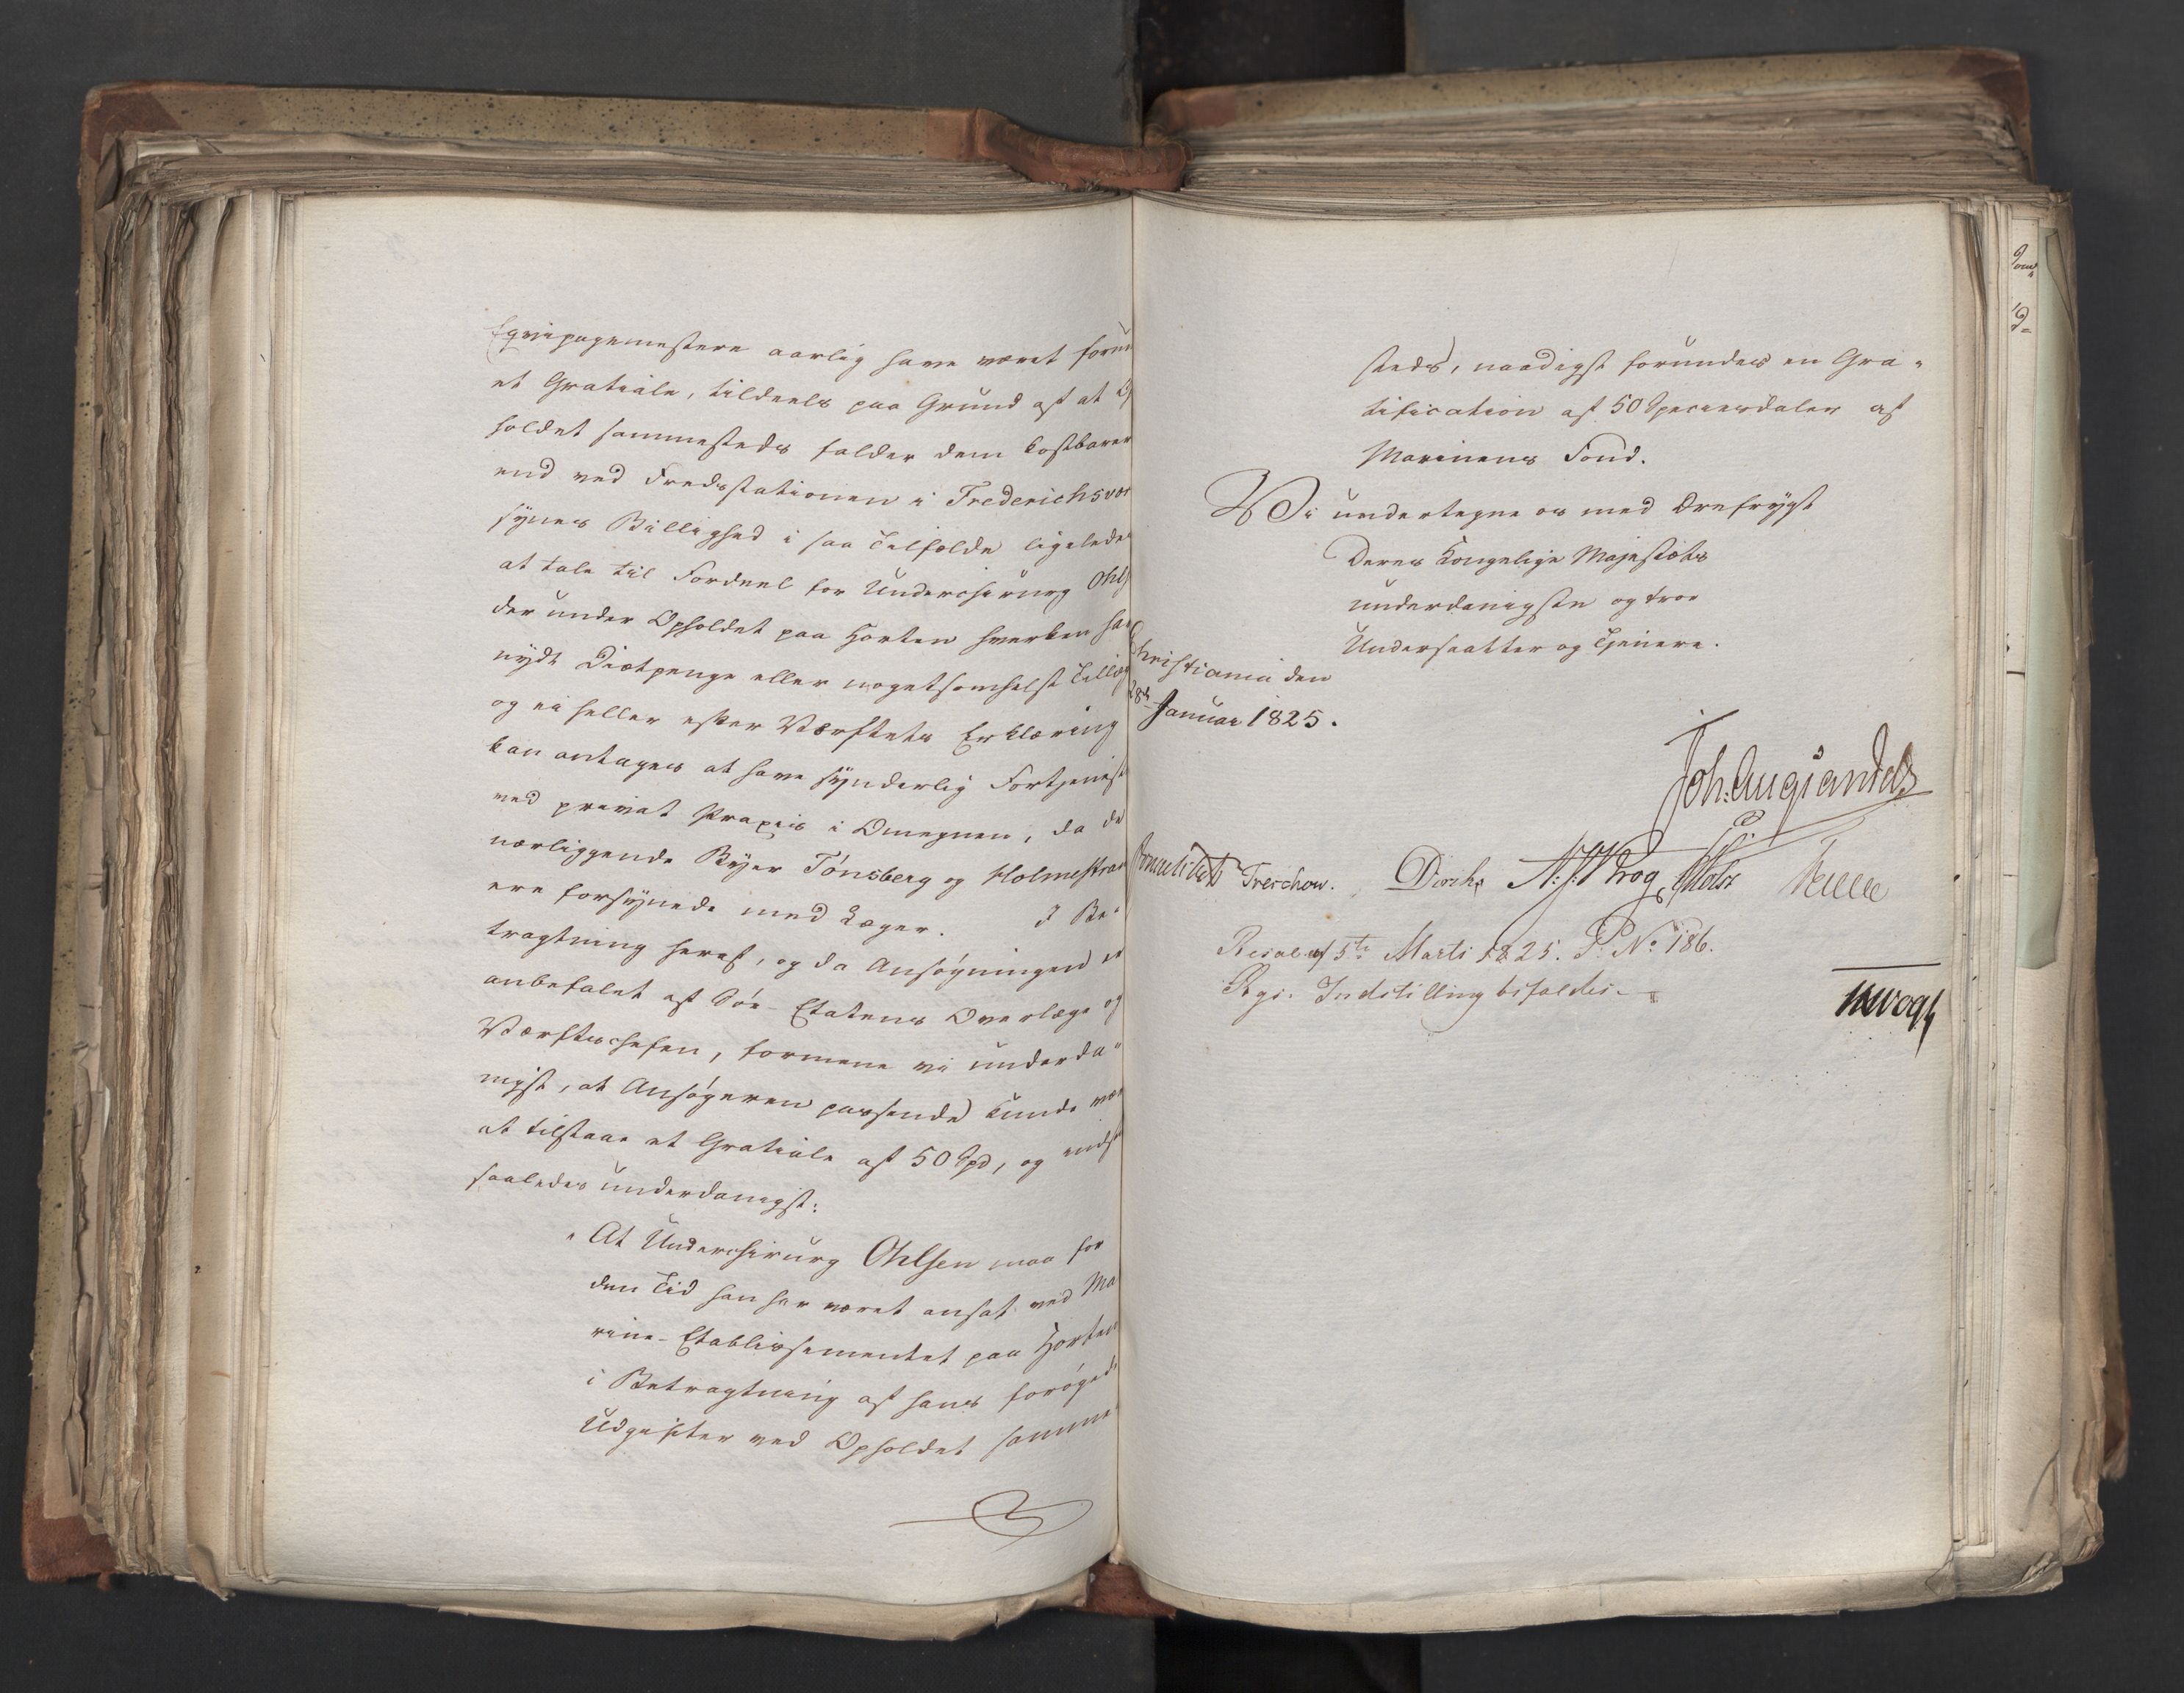 Eqvipagemestere aarlig have været forun
et Gratiale, tildeels paa Grund af at Op
holdet sammesteds falder dem kostbarer
end ved Fredsstationen i Frederichsvær
synes Billighed i saa Tilfælde ligelede
at tale til Fordeel for Underchirurg Ohls
der under Opholdet paa Horten hverken har
nydt Diætpenge eller nogetsomhelst Tillæg
og ei heller efter Værftets Erklæring
kan antages at have synderlig Fortjenest
ved privat Praxis i Omegnen, da de
nærliggende Byer Tönsberg og Holmestran
ere forsynede med Læger. I Be-
tragtning heraf, og da Ansögningen er
anbefalet af Söe-Etatens Overlæge og
Værftschefen, formene vi underda-
nigst, at Ansögeren passende kunde være
at tilstaae et Gratiale af 50 Spd, og indst
saaledes underdanigst:
"At Underchirurg Ohlsen maa for
den Tid han har været ansat ved Ma
rine-Etablissementet paa Horten
i Betragtning af hans forögede
Udgifter ved Opholdet samme
steds, naadigst forundes en Gra-
tification af 50 Speciesdaler af
Marinens Fond.
Vi undertegne os med Ærefrygt
Deres Kongelige Majestæts
underdanigste og troe
Undersaatter og Tjenere.
Christiania den
28de Januar 1825.
Joh: Aug: Sandels
Treschow. Diriks N: J: Krog P Holst
Resol. af 5te Marti 1825. P: No 186.
Rgs. Indstilling bifaldes.